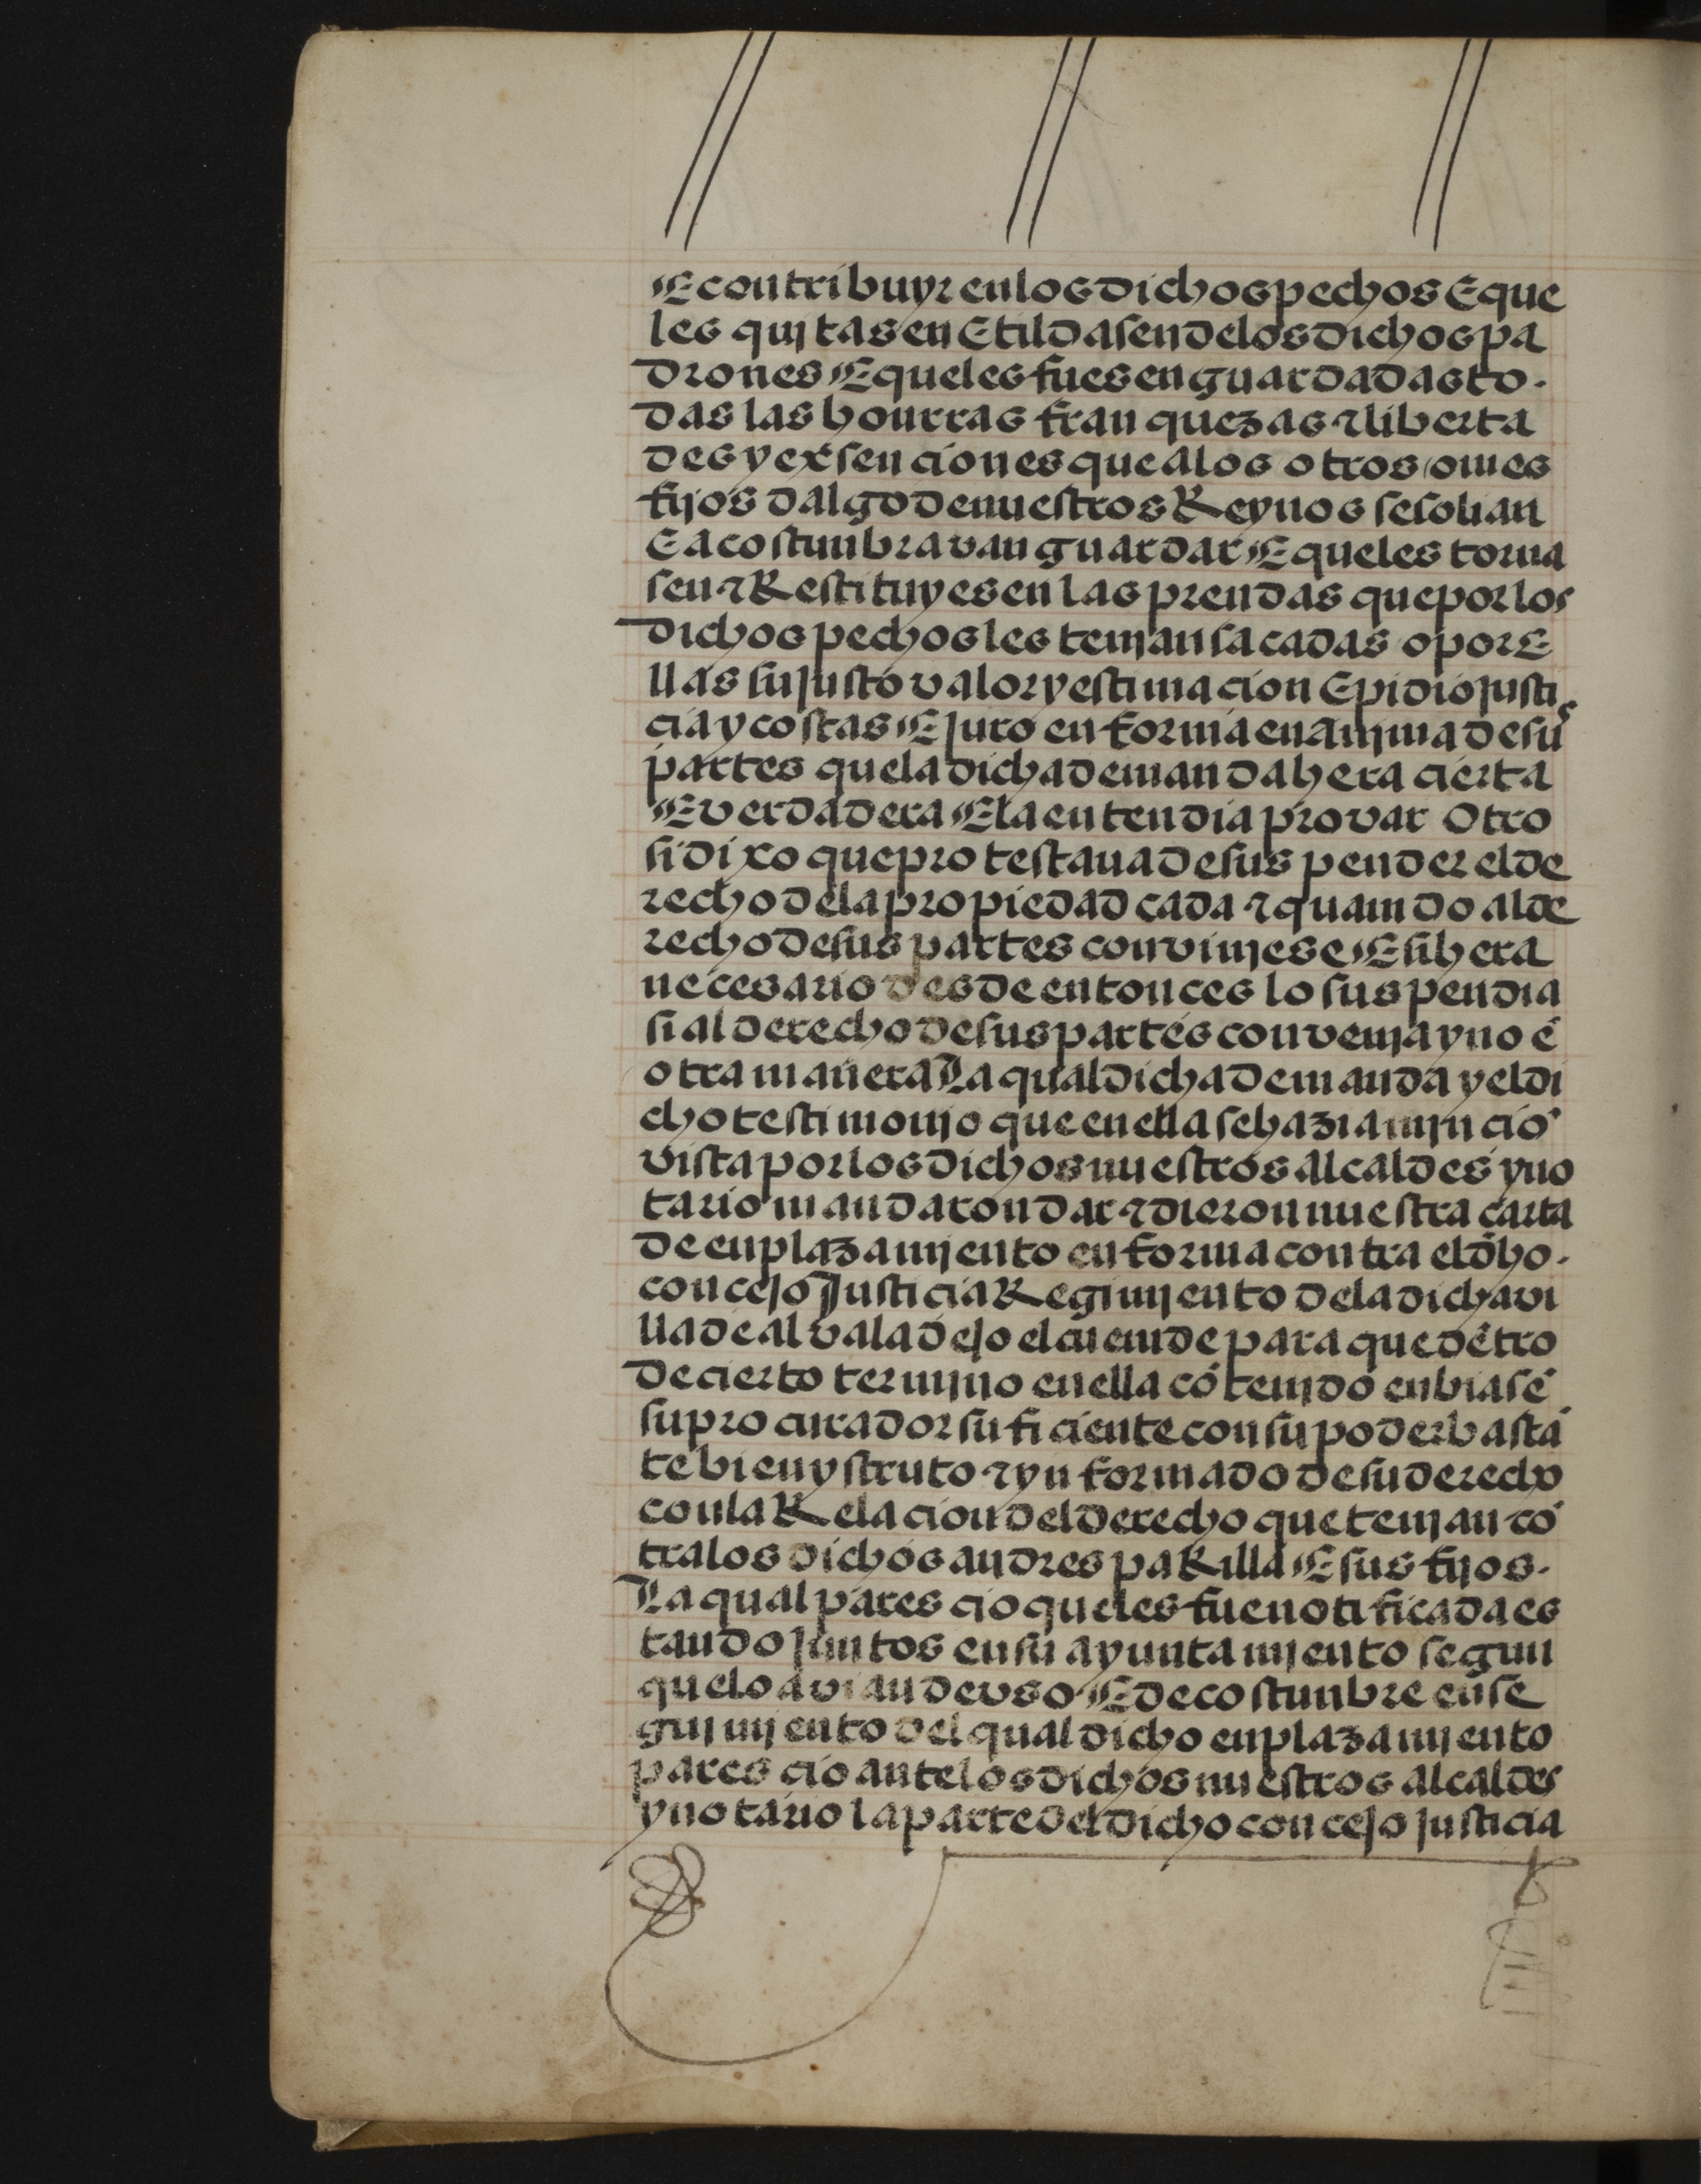 E contribuyr en los dichos pechos E que
les quitasen E tildasen de los dichos pa
drones E que les fuesen guardadas to-
das las honrras franquezas ⁊ liberta
des y exsenciones que a los otros omes
fijos dalgo de nuestros Reynos se solian
E acostunbravan guardar E que les torna
sen ⁊ Restituyesen las prendas que por los
dichos pechos les tenjan sacadas o por E
llas su justo valor y estimacion E pidio justi
cia y costas E juro en forma en anjma de sus
partes que la dicha demanda hera cierta
E verdadera E la entendia provar Otro
si dixo que protestaua de suspender el de
recho de la propiedad cada ⁊ quando al de
recho de sus partes convinjese E si hera
necesario desde entonces lo suspendia
si al derecho de sus partes convenja y no ē
otra manera La qual dicha demanda y el di
cho testimonjo que en ella se hazia mjnciō
vista por los dichos nuestros alcaldes y no
tario mandaron dar ⁊ dieron nuestra carta
de enplazamjento en forma contra el dho-
concejo Justicia Regimjento de la dicha vi
lla de alvaladejo el cuende para que dētro
de cierto termjno en ella cōtenjdo enbiasē
su procurador suficiente con su poder bastā
te bien ystruto ⁊ ynformado de su derecho
con la Relacion del derecho que tenjan cō
tra los dichos andres paRilla E sus fijos-
La qual parescio que les fue notificada es
tando juntos en su ayuntamjento segun
que lo avian de vso E de costunbre en se
gujmjento del qual dicho enplazamjento
parescio ante los dichos nuestros alcaldes
y notario la parte del dicho concejo justicia